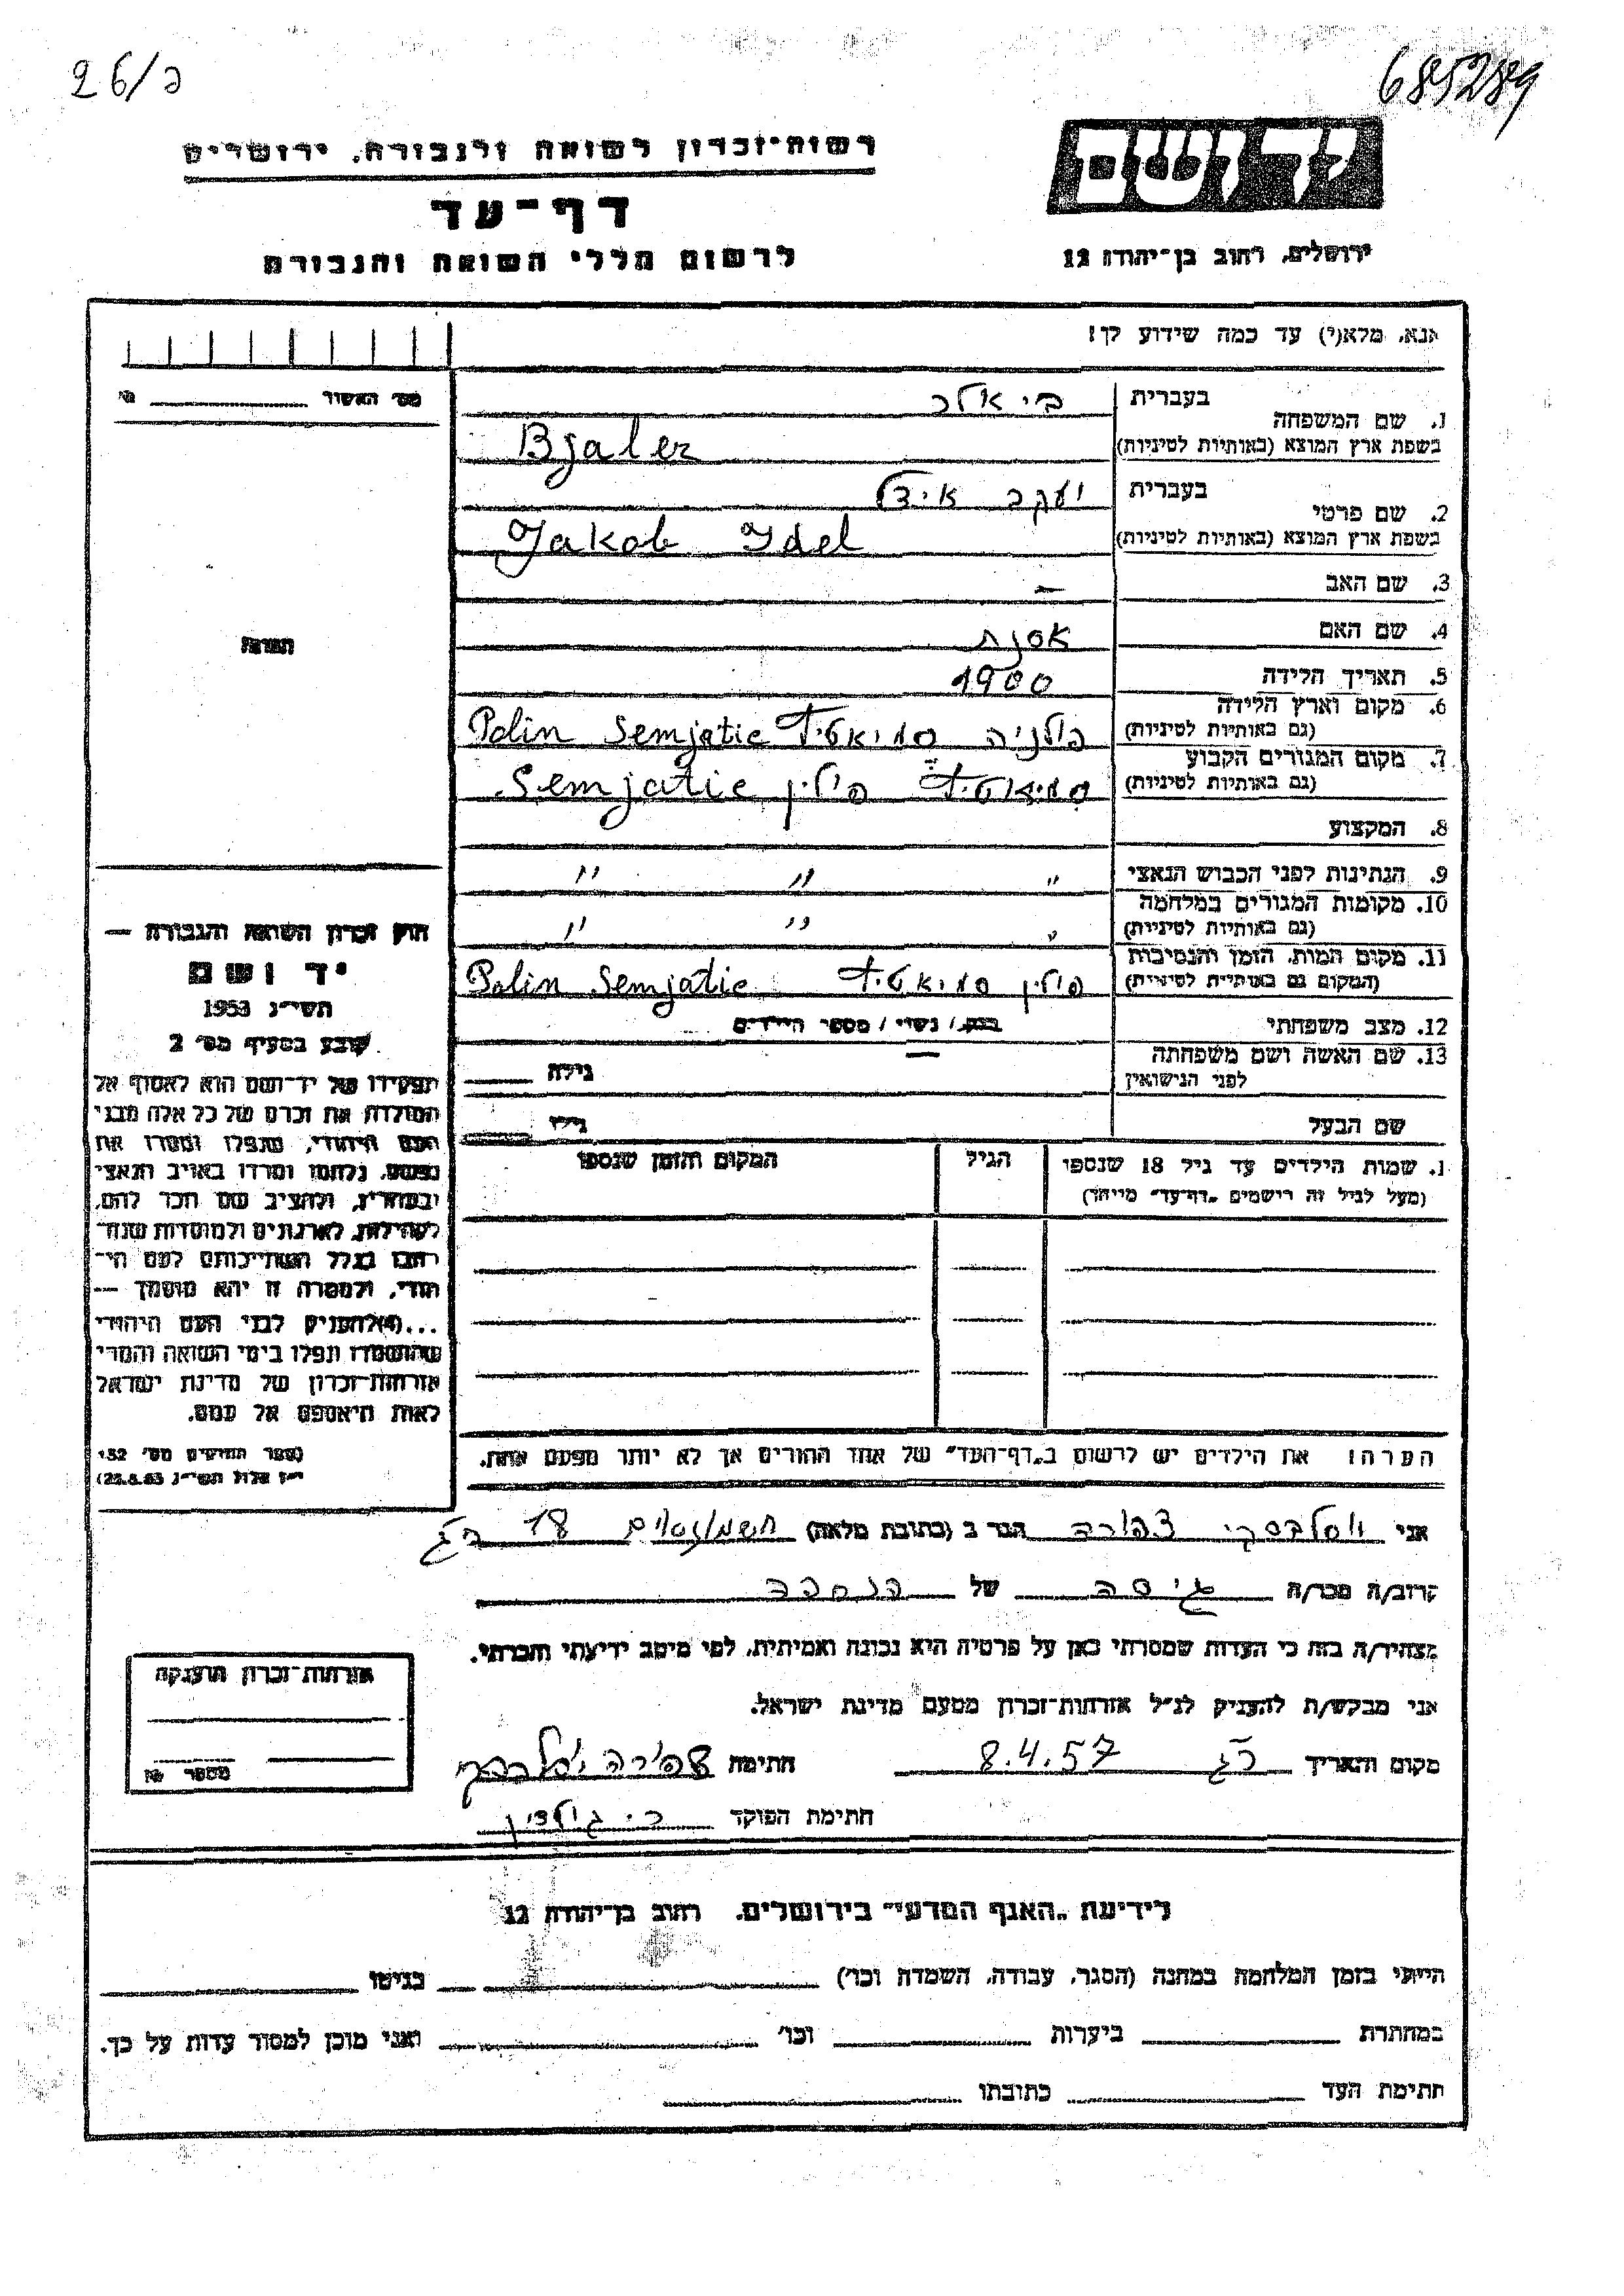 26/כ
685289
רשות-זכרון לשואה ולגבורה, ירושלים
יד ושם
דף-עד
לרשום חללי השואה והגבורה
ירושלים, רחוב בן-יהודה 12
אנא, מלא(י) עד כמה שידוע לך!
מס' האשור № ________
1. שם המשפחה בעברית ביאלר
בשפת ארץ המוצא (באותיות לטיניות) Bjaler
2. שם פרטי בעברית יעקב אידל
בשפת ארץ המוצא (באותיות לטיניות) Jakob Idel
3. שם האב —
4. שם האם אסנת
5. תאריך הלידה 1900
6. מקום וארץ הלידה (גם באותיות לטיניות) פולניה סמיאטיץ Polin Semjatic
7. מקום המגורים הקבוע (גם באותיות לטיניות) סמיאטיץ פולין Semjatic
8. המקצוע
9. הנתינות לפני הכבוש הנאצי " " "
10. מקומות המגורים במלחמה (גם באותיות לטיניות) " " "
11. מקום המות, הזמן והנסיבות (המקום גם באותיות לטיניות) פולין סמיאטיץ Polin Semjatic
12. מצב משפחתי רווק / נשוי / מספר הילדים
13. שם האשה ושם משפחתה לפני הנישואין — גילה
שם הבעל גילו
התמונה
חוק זכרון השואה והגבורה —
יד ושם
תשי"ג 1953
קובע בסעיף מס' 2
תפקידו של יד-ושם הוא לאסוף אל
המולדת את זכרם של כל אלה מבני
העם היהודי, שנפלו ומסרו את
נפשם, נלחמו ומרדו באויב הנאצי
ובעוזריו, ולהציב שם וזכר להם,
לקהילות, לארגונים ולמוסדות שנח-
רבו בגלל השתייכותם לעם הי-
הודי, ולמטרה זו יהא מוסמך —
...(4) להעניק לבני העם היהודי
שהושמדו ונפלו בימי השואה והמרי
אזרחות-זכרון של מדינת ישראל
לאות היאספם אל עמם.
(ספר החוקים מס' 132
י"ז אלול תשי"ג 28.8.53)
1. שמות הילדים עד גיל 18 שנספו
(מעל לגיל זה רושמים "דף-עד" מיוחד)
הגיל
המקום והזמן שנספו
הערה: את הילדים יש לרשום ב"דף-העד" של אחד ההורים אך לא יותר מפעם אחת.
אני וסלבסקי צפורה הגר ב (כתובת מלאה) חשמונאים 18 ר"ג
קרוב/ה מכר/ה גיסה של הנספה
מצהיר/ה בזה כי העדות שמסרתי כאן על פרטיה היא נכונה ואמיתית, לפי מיטב ידיעתי והכרתי.
אני מבקש/ת להעניק לנ"ל אזרחות-זכרון מטעם מדינת ישראל.
מקום והתאריך ר"ג 8.4.57 חתימה
חתימת הפוקד
אזרחות-זכרון הוענקה
מספר №
לידיעת "האגף המדעי" בירושלים, רחוב בן-יהודה 12
הייתי בזמן המלחמה במחנה (הסגר, עבודה, השמדה וכו') ________ בגיטו ________
במחתרת ________ ביערות ________ וכו' ________ ואני מוכן למסור עדות על כך.
חתימת העד ________ כתובתו ________